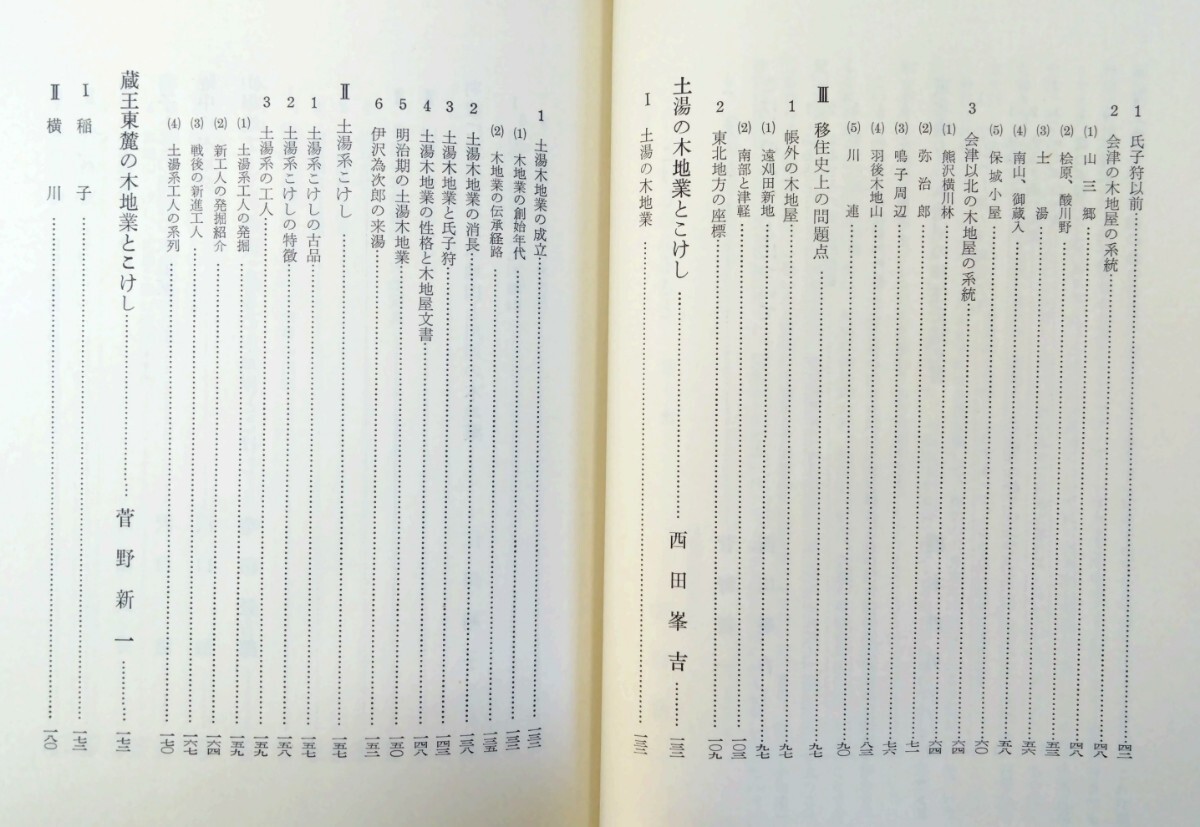 1 氏子狩以前……四二
2 会津の木地屋の系統……四八
⑴ 山三郷……四八
⑵ 桧原、酸川野……四八
⑶ 土湯……五三
⑷ 南山、御蔵入……五六
⑸ 保城小屋……五八
3 会津以北の木地屋の系統……六〇
⑴ 熊沢横川林……六四
⑵ 弥治郎……六四
⑶ 鳴子周辺……七一
⑷ 羽後木地山……七六
⑸ 川連……八三
Ⅲ 移住史上の問題点……九〇
1 帳外の木地屋……九七
⑴ 遠刈田新地……九七
⑵ 南部と津軽……一〇三
2 東北地方の座標……一〇九
土湯の木地業とこけし……西田峯吉……一三二
Ⅰ 土湯の木地業……一三二
1 土湯木地業の成立……一三二
⑴ 木地業の創始年代……一三二
⑵ 木地業の伝承経路……一三五
2 土湯木地業の消長……一三八
3 土湯木地業と氏子狩……一四三
4 土湯木地業の性格と木地屋文書……一四八
5 明治期の土湯木地業……一五〇
6 伊沢為次郎の来湯……一五二
Ⅱ 土湯系こけし……一五七
1 土湯系こけしの古品……一五七
2 土湯系こけしの特徴……一五八
3 土湯系の工人……一五九
⑴ 土湯系工人の発掘……一五九
⑵ 新工人の発掘紹介……一六四
⑶ 戦後の新進工人……一六七
⑷ 土湯系工人の系列……一七〇
蔵王東麓の木地業とこけし……菅野新一……一七二
Ⅰ 稲子……一七二
Ⅱ 横川……一八〇